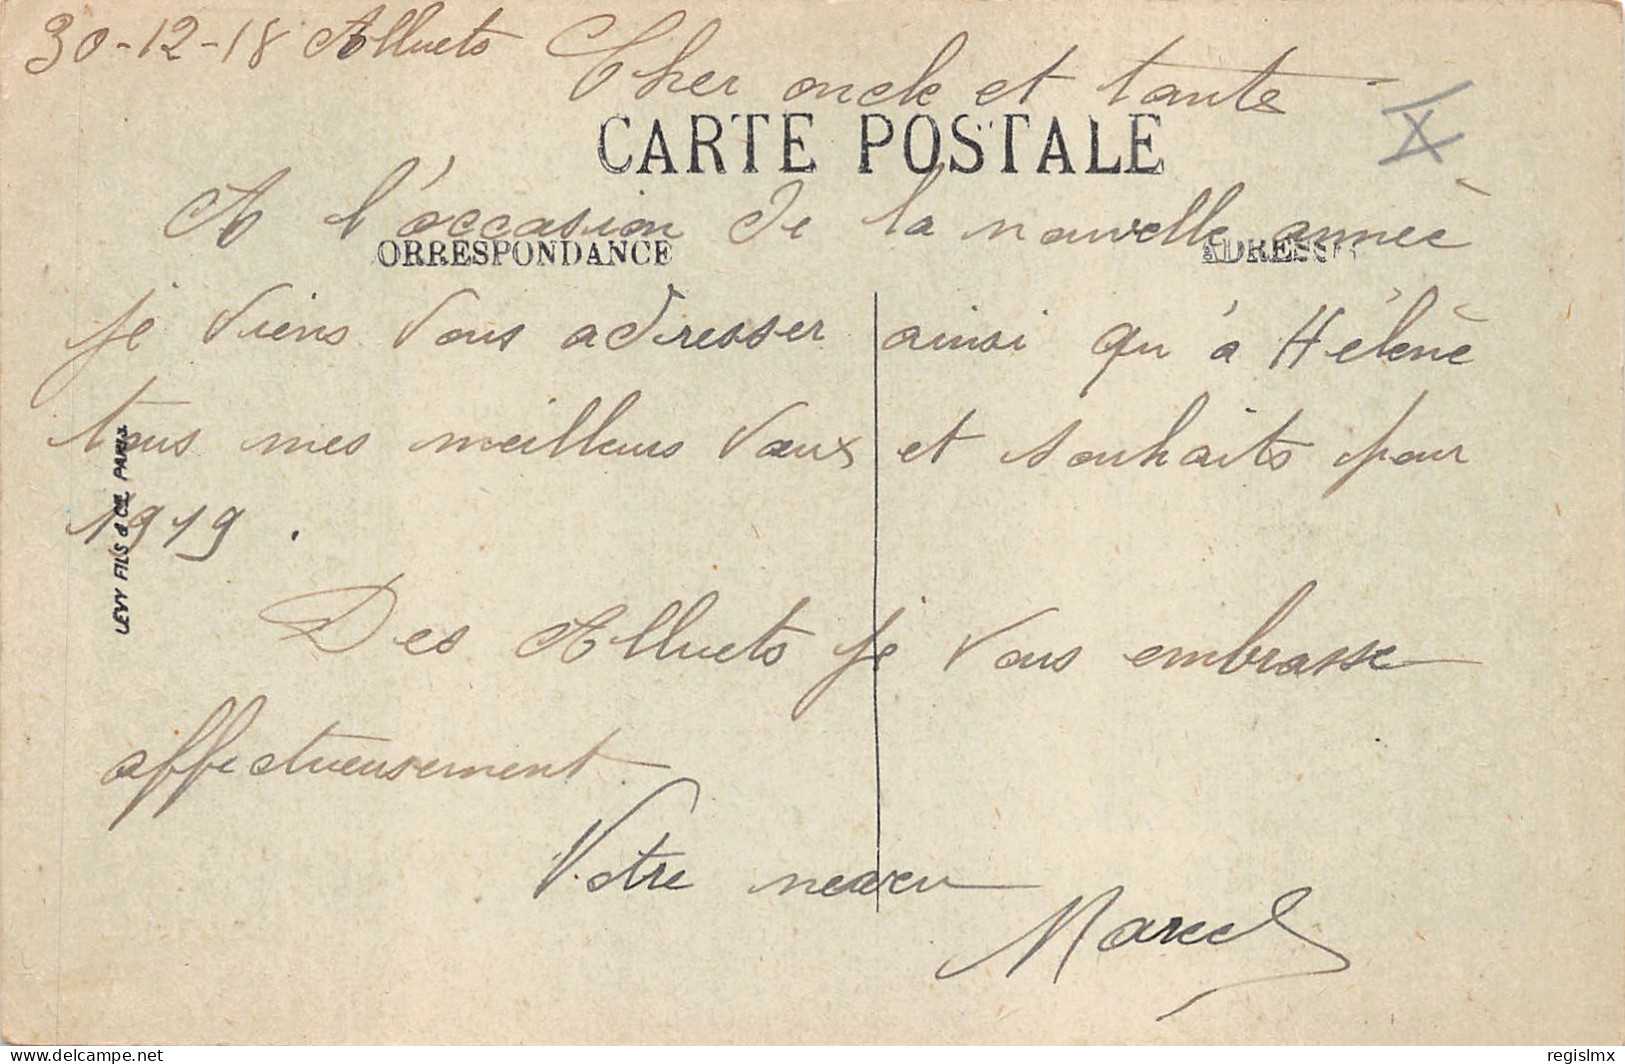 30-12-18 Alluets Cher oncle et tante
CARTE POSTALE
X
A l'occasion de la nouvelle année
ORRESPONDANCE
ADRESSE
je viens vous adresser ainsi qu'à Hélène
tous mes meilleurs vœux et souhaits pour
1919.
LEVY FILS & CIE PARIS
Des Alluets je vous embrasse
affectueusement
Votre neveu
Marcel
delcampe.net
regislmx